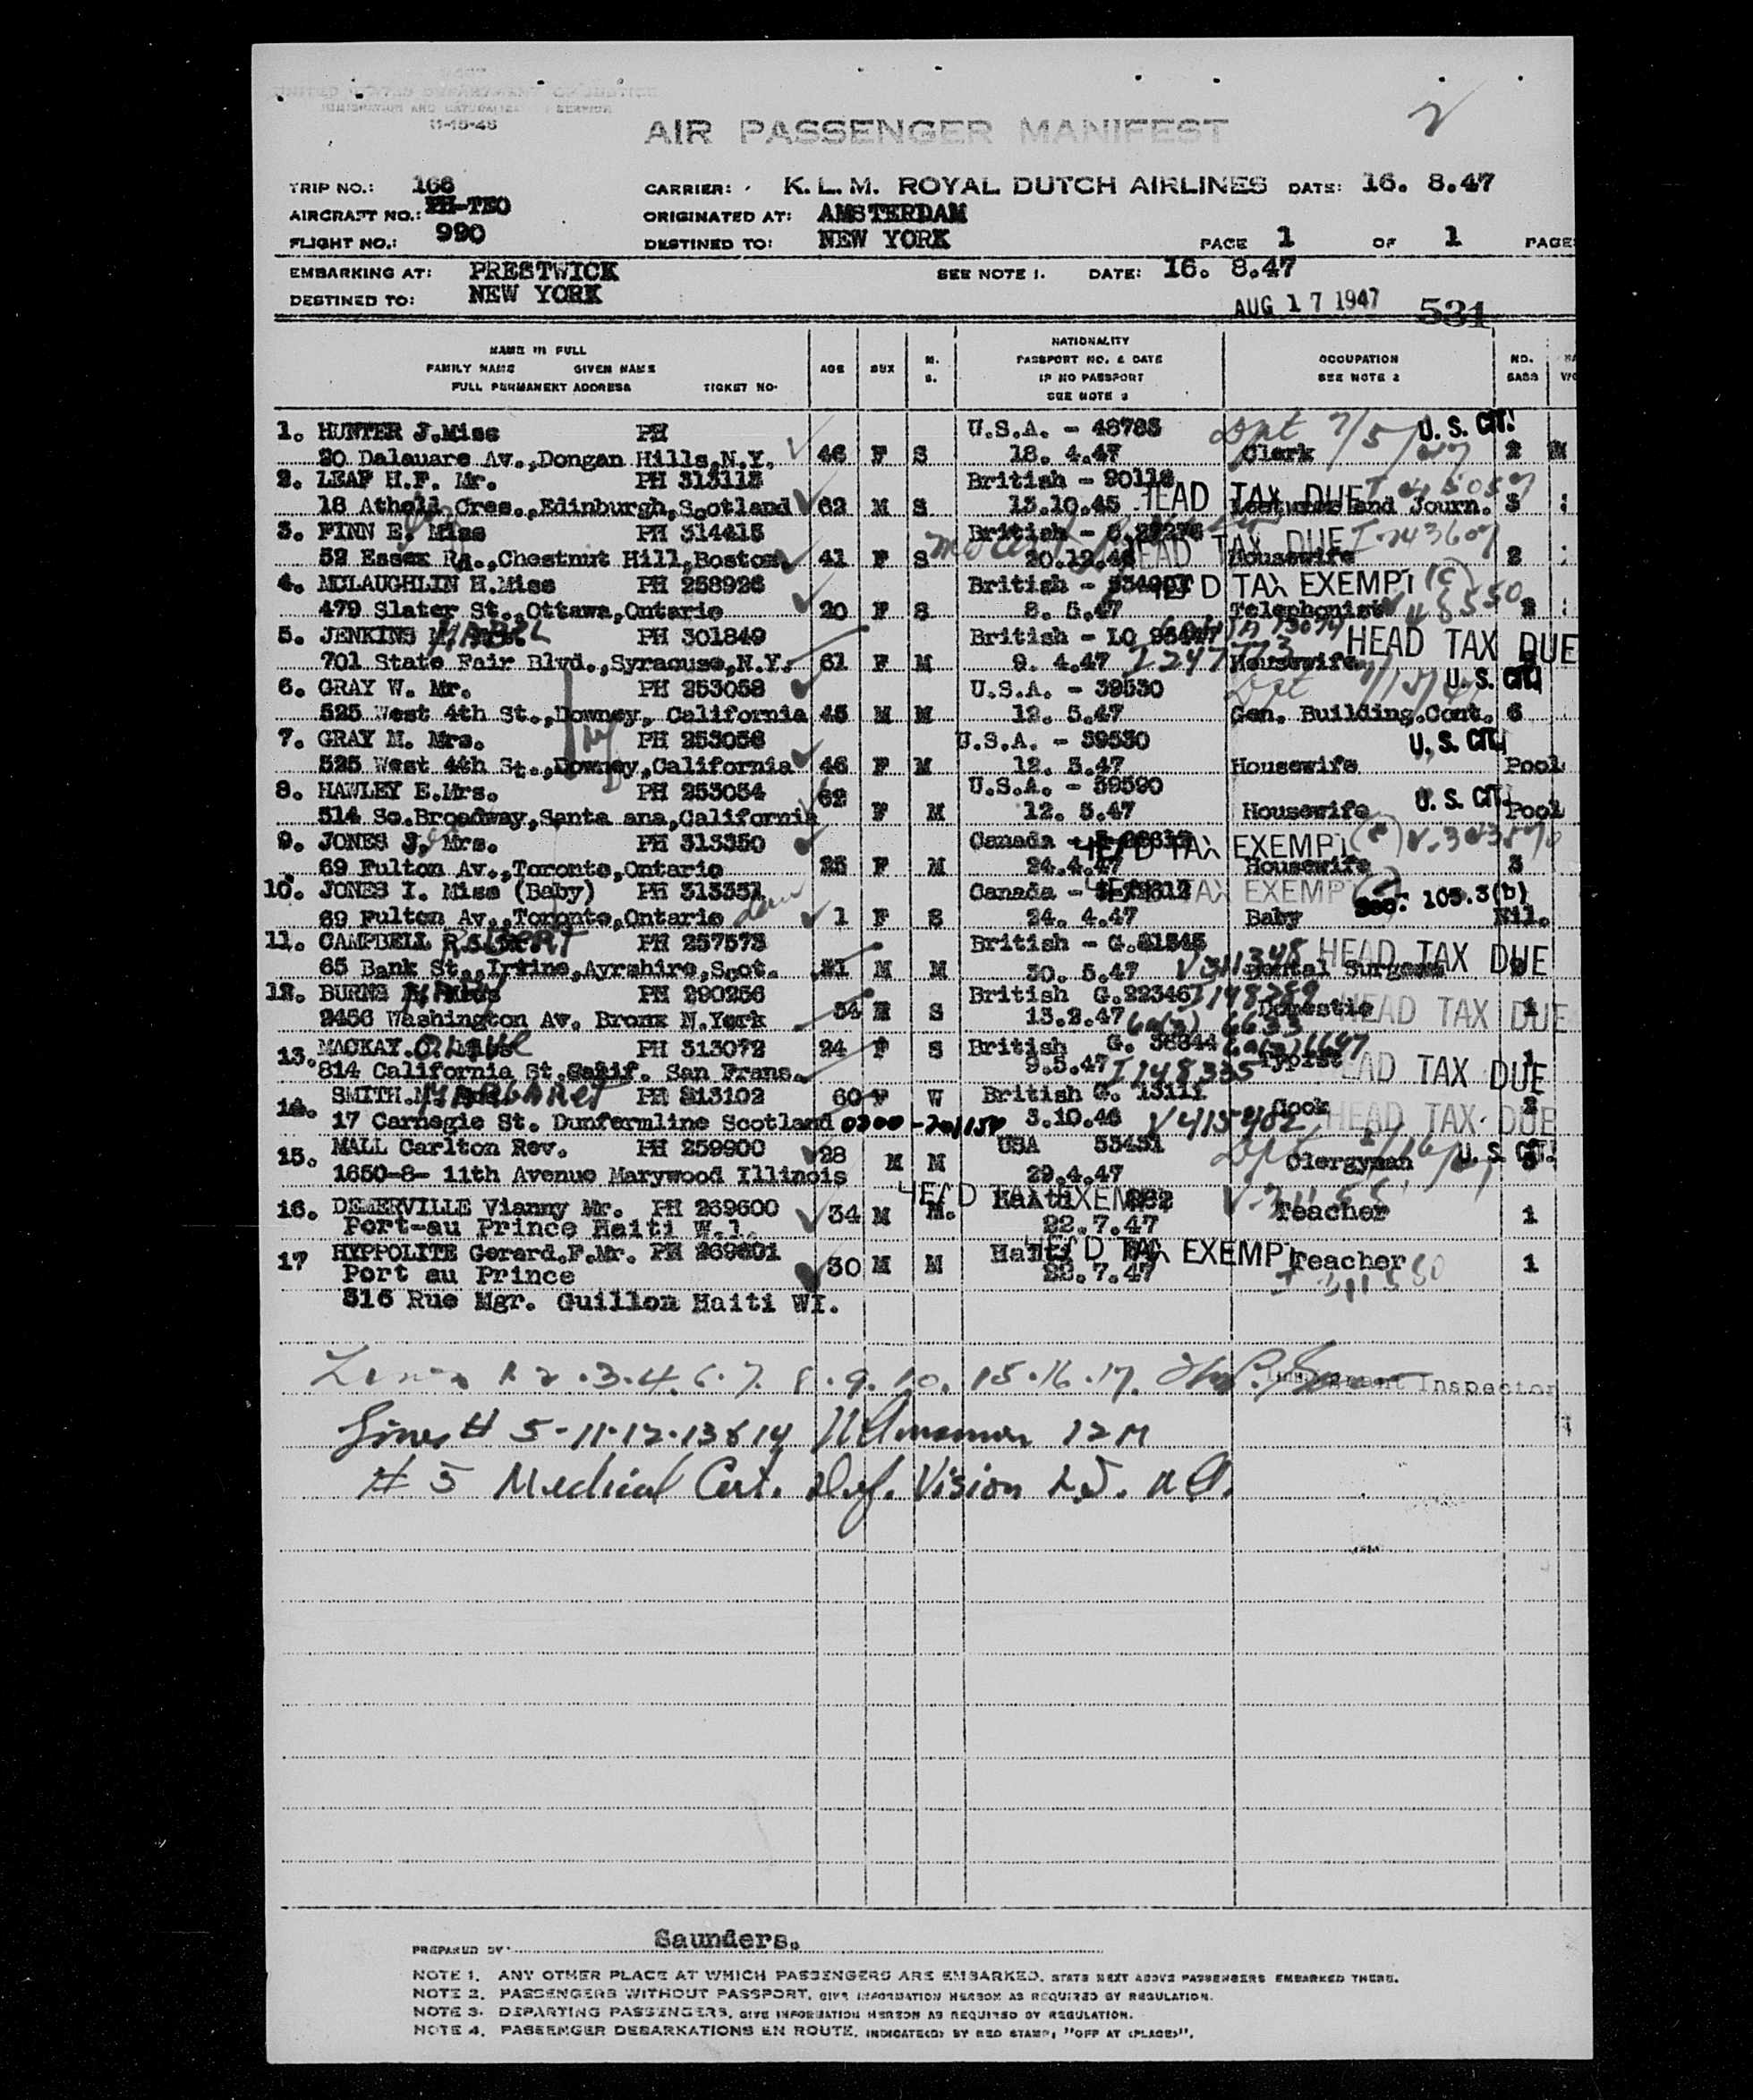 11-15-46
AIR PASSENGER MANIFEST
2
TRIP NO.: 166 CARRIER: K. L. M. ROYAL DUTCH AIRLINES DATE: 16. 8.47
AIRCRAFT NO.: PH-TEO ORIGINATED AT: AMSTERDAM
FLIGHT NO.: 990 DESTINED TO: NEW YORK PAGE 1 OF 1 PAGE
EMBARKING AT: PRESTWICK SEE NOTE 1. DATE: 16. 8.47
DESTINED TO: NEW YORK
AUG 17 1947 531
NAME IN FULL
FAMILY NAME GIVEN NAME
FULL PERMANENT ADDRESS TICKET NO.
AGE SEX M. S.
NATIONALITY
PASSPORT NO. & DATE
IF NO PASSPORT
SEE NOTE 2
OCCUPATION
SEE NOTE 2
NO. BAGS
1. HUNTER J.Miss PH U.S.A. - 48783 Dpt 7/5/47 U. S. CIT.
20 Dalauare Av.,Dongan Hills,N.Y. 46 F S 18. 4.47 Clerk 2 M
2. LEAF H.F. Mr. PH 313113 British - 90118
18 Atholl Cres.,Edinburgh,Scotland 62 M S 13.10.45 HEAD TAX DUE Lecturer and Journ. 3
3. FINN E. Miss PH 314413 British -
52 Essex Rd.,Chestnut Hill,Boston 41 F S 20.12.46 HEAD TAX DUE Housewife 2
4. MCLAUGHLIN H.Miss PH 258926 British - HEAD TAX EXEMPT
479 Slater St.,Ottawa,Ontario 20 F S 8. 5.47 Telephonist 2
5. JENKINS MABEL PH 301849 British - LO HEAD TAX DUE
701 State Fair Blvd.,Syracuse,N.Y. 61 F M 9. 4.47 I 247773 Housewife
6. GRAY W. Mr. PH 253058 U.S.A. - 39530 Dpt U. S. CIT.
525 West 4th St.,Downey, California 45 M M 12. 5.47 Gen. Building.Cont. 6
7. GRAY M. Mrs. PH 253056 U.S.A. - 39530 U. S. CIT.
525 West 4th St.,Downey,California 46 F M 12. 5.47 Housewife Pool
8. HAWLEY E.Mrs. PH 253054 62 U.S.A. - 39590 U. S. CIT.
514 So.Broadway,Santa ana,California F M 12. 5.47 Housewife Pool
9. JONES J. Mrs. PH 313350 Canada - HEAD TAX EXEMPT
69 Fulton Av.,Toronto,Ontario 25 F M 24.4.47 Housewife 3
10. JONES I. Miss (Baby) PH 313351 Canada - HEAD TAX EXEMPT Sec. 105.3(b)
69 Fulton Av.,Toronto,Ontario 1 F S 24. 4.47 Baby Nil.
11. CAMPBELL ROBERT PH 257573 British - G.21545 HEAD TAX DUE
65 Bank St.,Irvine,Ayrshire,Scot. 31 M M 30. 5.47 V311348 Dental Surgeon
12. BURNS MARY PH 290256 British G.22346 I148289 HEAD TAX DUE
2456 Washington Av. Bronx N.York 34 F S 13.2.47 6a(3) 6633 Domestic 1
13. MACKAY. OLIVE PH 313072 24 F S British G. 38844 6a(3)11647
814 California St.Calif. San Frans. 9.5.47 I148335 Typist HEAD TAX DUE 1
14. SMITH. MARGARET PH 313102 60 F W British G. 13111
17 Carnegie St. Dunfermline Scotland 0300 - 3.10.46 V415402 Cook HEAD TAX DUE 2
15. MALL Carlton Rev. PH 259900 28 M M USA 55451 Dpt U. S. CIT.
1650-8- 11th Avenue Marywood Illinois 29.4.47 Clergyman 3
16. DEMERVILLE Vianny Mr. PH 269600 34 M M. Haiti HEAD TAX EXEMPT Teacher 1
Port-au Prince Haiti W.1. 22.7.47
17 HYPPOLITE Gerard.F.Mr. PH 269601 30 M M Haiti HEAD TAX EXEMPT Teacher 1
Port au Prince 22.7.47
316 Rue Mgr. Guillon Haiti WI.
Lines 1.2.3.4.6.7.8.9.10.15.16.17. Immigrant Inspector
Lines # 5-11-12-13&14
# 5 Medical Cert. Def. Vision
PREPARED BY Saunders.
NOTE 1. ANY OTHER PLACE AT WHICH PASSENGERS ARE EMBARKED, STATE NEXT ABOVE PASSENGERS EMBARKED THERE.
NOTE 2. PASSENGERS WITHOUT PASSPORT, GIVE INFORMATION HEREON AS REQUIRED BY REGULATION.
NOTE 3. DEPARTING PASSENGERS, GIVE INFORMATION HEREON AS REQUIRED BY REGULATION.
NOTE 4. PASSENGER DEBARKATIONS EN ROUTE, INDICATE(D) BY RED STAMP, "OFF AT (PLACE)".